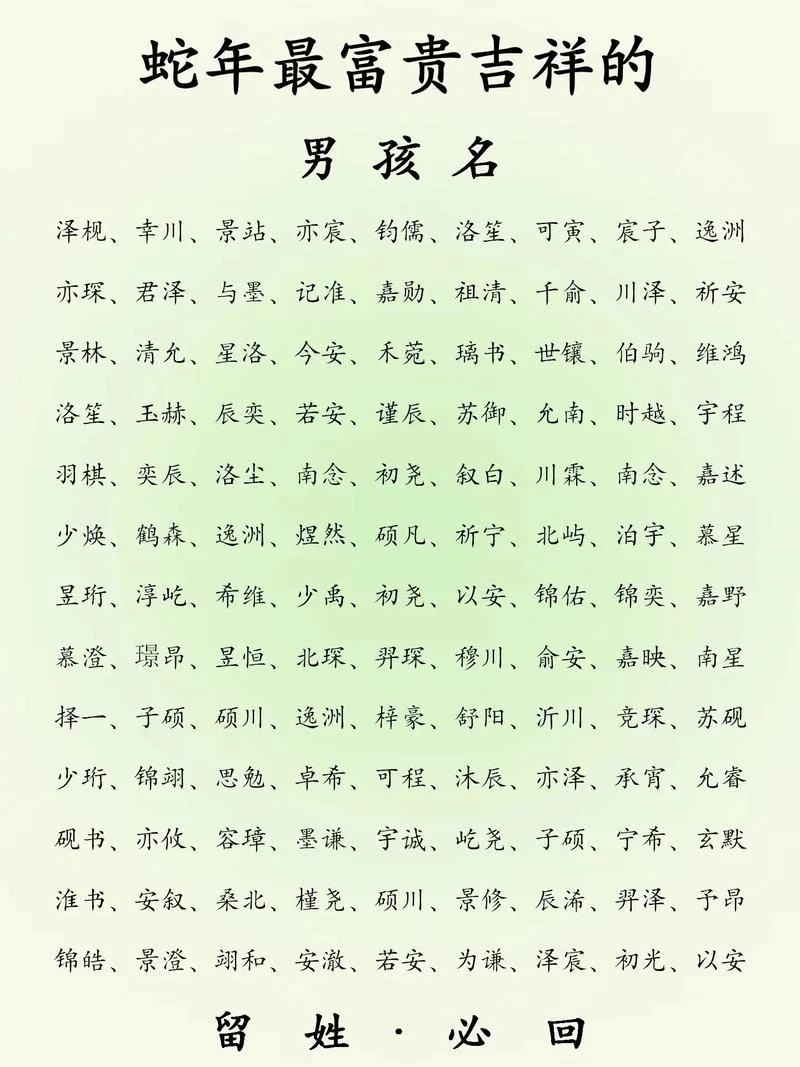 蛇年最富贵吉祥的
男孩名
泽枧、幸川、景站、亦宸、钧儒、洛笙、可寅、宸子、逸洲
亦琛、君泽、与墨、记准、嘉勋、祖清、千俞、川泽、祈安
景林、清允、星洛、今安、禾菀、璃书、世镶、伯驹、维鸿
洛笙、玉赫、辰奕、若安、谨辰、苏御、允南、时越、宇程
羽棋、奕辰、洛尘、南念、初尧、叙白、川霖、南念、嘉述
少焕、鹤森、逸洲、煜然、硕凡、祈宁、北屿、泊宇、慕星
昱珩、淳屹、希维、少禹、初尧、以安、锦佑、锦奕、嘉野
慕澄、璟昂、昱恒、北琛、羿琛、穆川、俞安、嘉映、南星
择一、子硕、硕川、逸洲、梓豪、舒阳、沂川、竞琛、苏砚
少珩、锦翊、思勉、卓希、可程、沐辰、亦泽、承宵、允睿
砚书、亦攸、容璋、墨谦、宇诚、屹尧、子硕、宁希、玄默
淮书、安叙、桑北、槿尧、硕川、景修、辰浠、羿泽、予昂
锦皓、景澄、翊和、安澈、若安、为谦、泽宸、初光、以安
留姓·必回